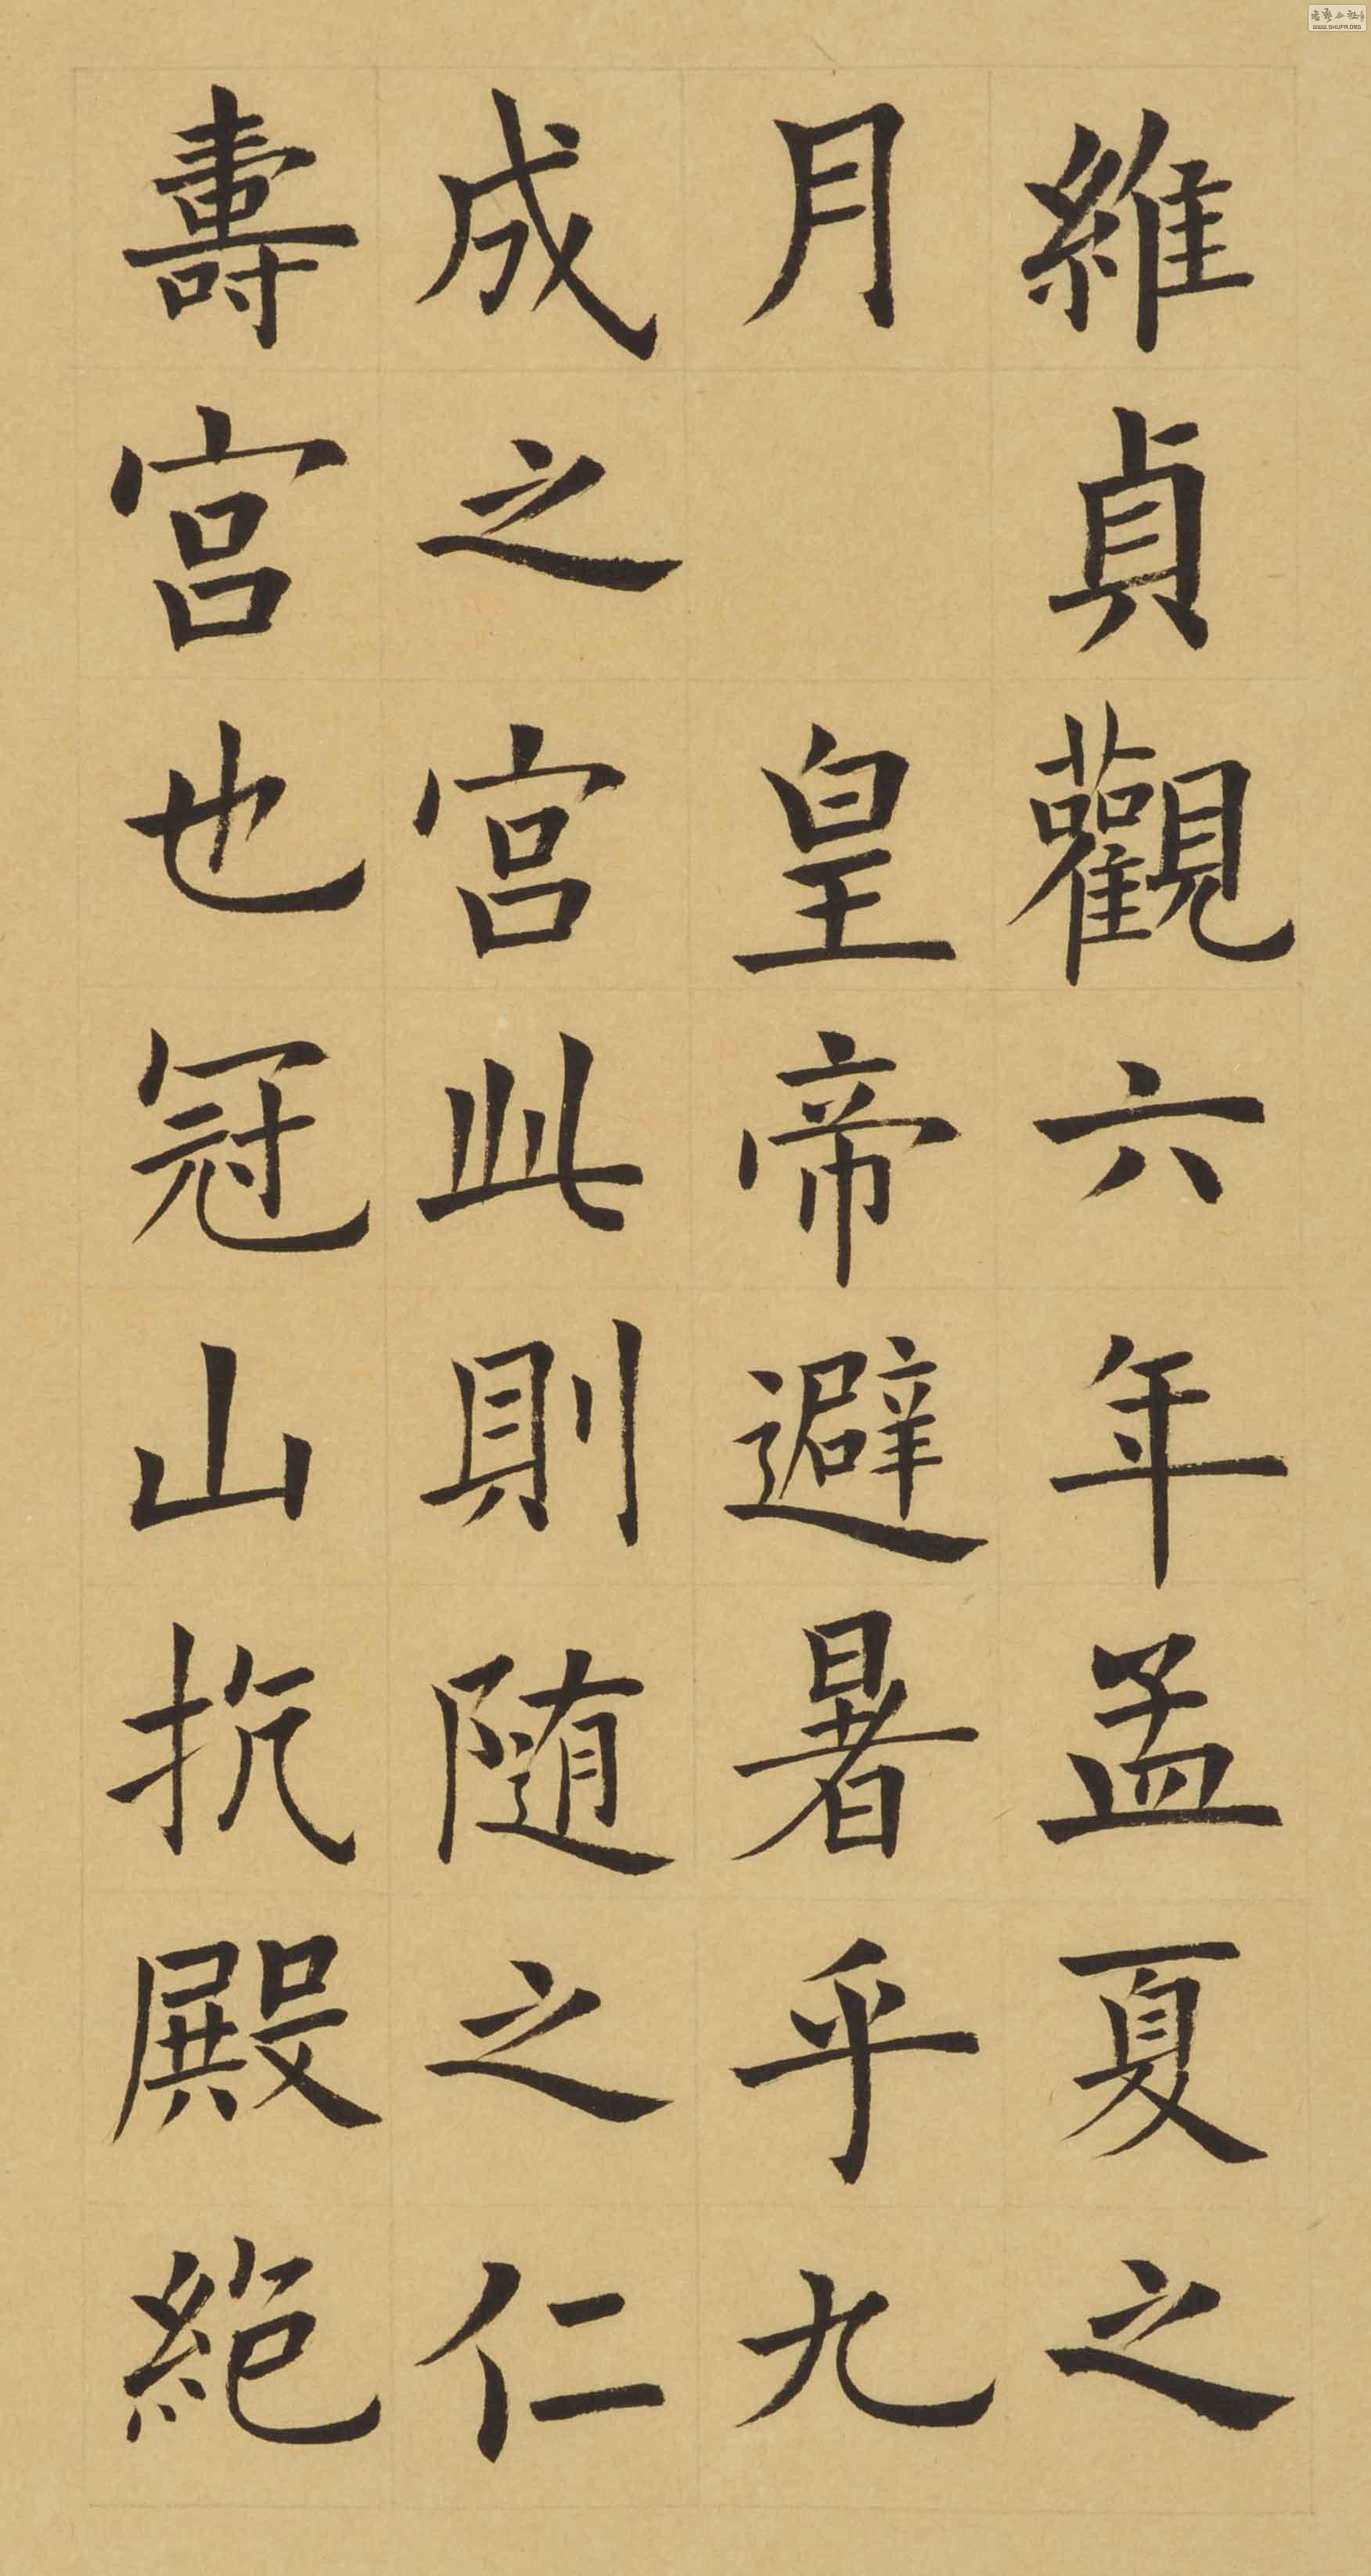 維貞觀六年孟夏之
月　皇帝避暑乎九
成之宫此則隨之仁
壽宫也冠山抗殿絕
WWW.SHUFA.ORG